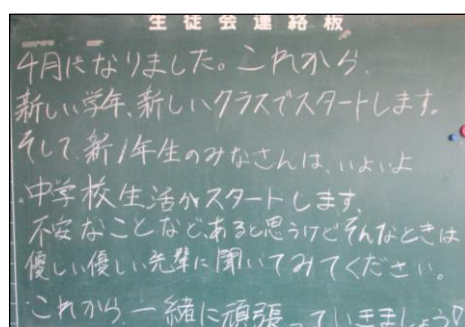 生徒会連絡板
4月になりました。これから、
新しい学年、新しいクラスでスタートします。
そして、新1年生のみなさんは、いよいよ
中学校生活がスタートします。
不安なことなど、あると思うけどそんなときは
優しい優しい先輩に聞いてみてください。
これから、一緒に頑張っていきましょう!